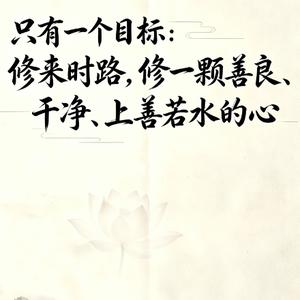 只有一个目标：
修来时路，修一颗善良、
干净、上善若水的心